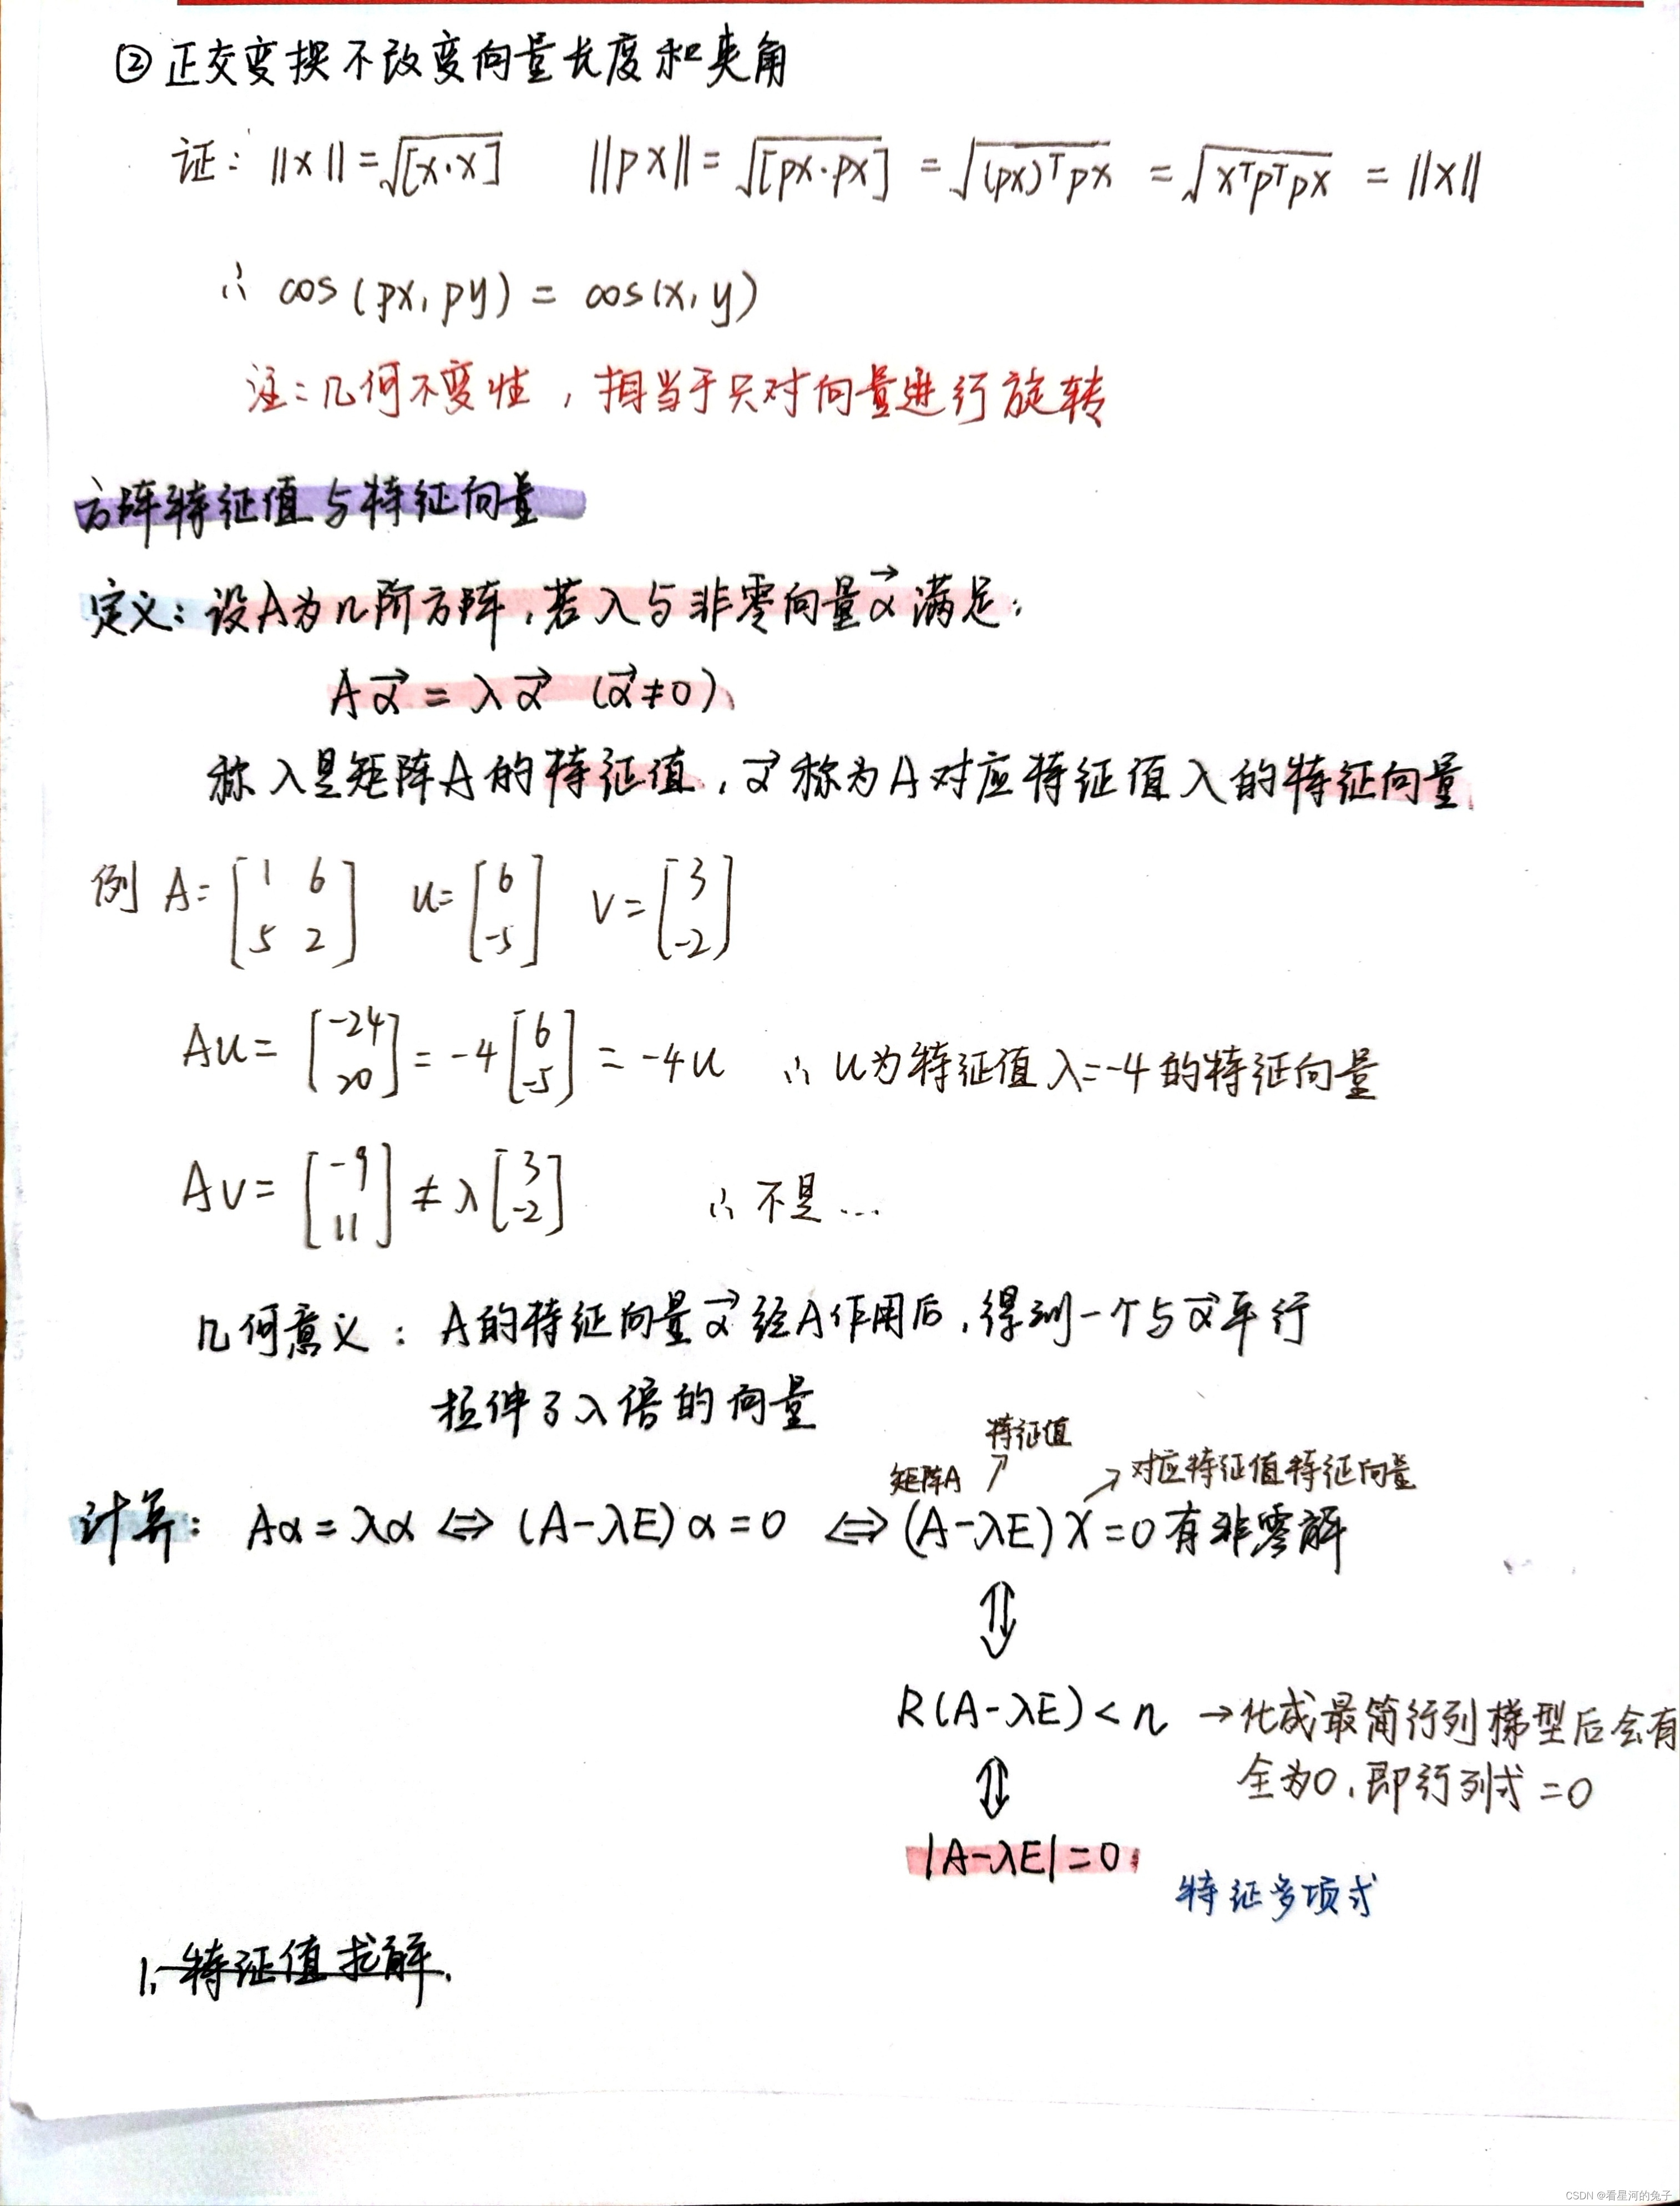 ② 正交变换不改变向量长度和夹角
证: ||x|| = √[x·x]  ||px|| = √[px·px] = √(px)ᵀpx = √xᵀpᵀpx = ||x||
∴ cos(px, py) = cos(x, y)
注:几何不变性,相当于只对向量进行旋转
方阵特征值与特征向量
定义:设A为n阶方阵,若λ与非零向量α⃗满足:
Aα⃗ = λα⃗ (α⃗≠0).
称λ是矩阵A的特征值,α⃗称为A对应特征值λ的特征向量.
例 A= [1 6; 5 2]  u= [6; -5]  v= [3; -2]
Au= [-24; 20] = -4 [6; -5] = -4u ∴ u为特征值λ=-4的特征向量
Av= [-9; 11] ≠ λ [3; -2] ∴ 不是...
几何意义: A的特征向量α⃗经A作用后,得到一个与α⃗平行
拉伸了λ倍的向量
特征值
矩阵A 对应特征值特征向量
计算: Aα = λα ⇔ (A-λE)α=0 ⇔ (A-λE)X=0有非零解
⇕
R(A-λE)<n →化成最简行列梯型后会有
全为0.即行列式=0
⇕
|A-λE|=0.
特征多项式
1. 特征值求解.
CSDN @看星河的兔子